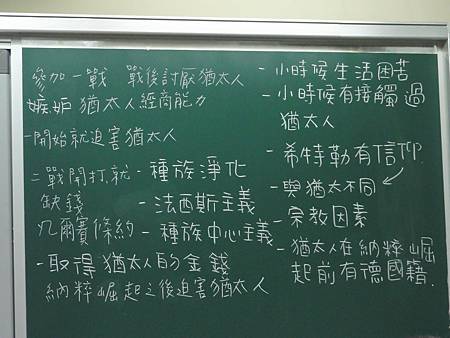 參加一戰 戰後討厭猶太人
嫉妒猶太人經商能力
一開始就迫害猶太人
二戰開打就
缺錢
凡爾賽條約
- 種族淨化
- 法西斯主義
- 種族中心主義
- 取得猶太人的金錢
納粹崛起之後迫害猶太人
- 小時候生活困苦
- 小時候有接觸過
猶太人
- 希特勒有信仰
- 與猶太不同
- 宗教因素
- 猶太人在納粹崛
起前有德國籍.